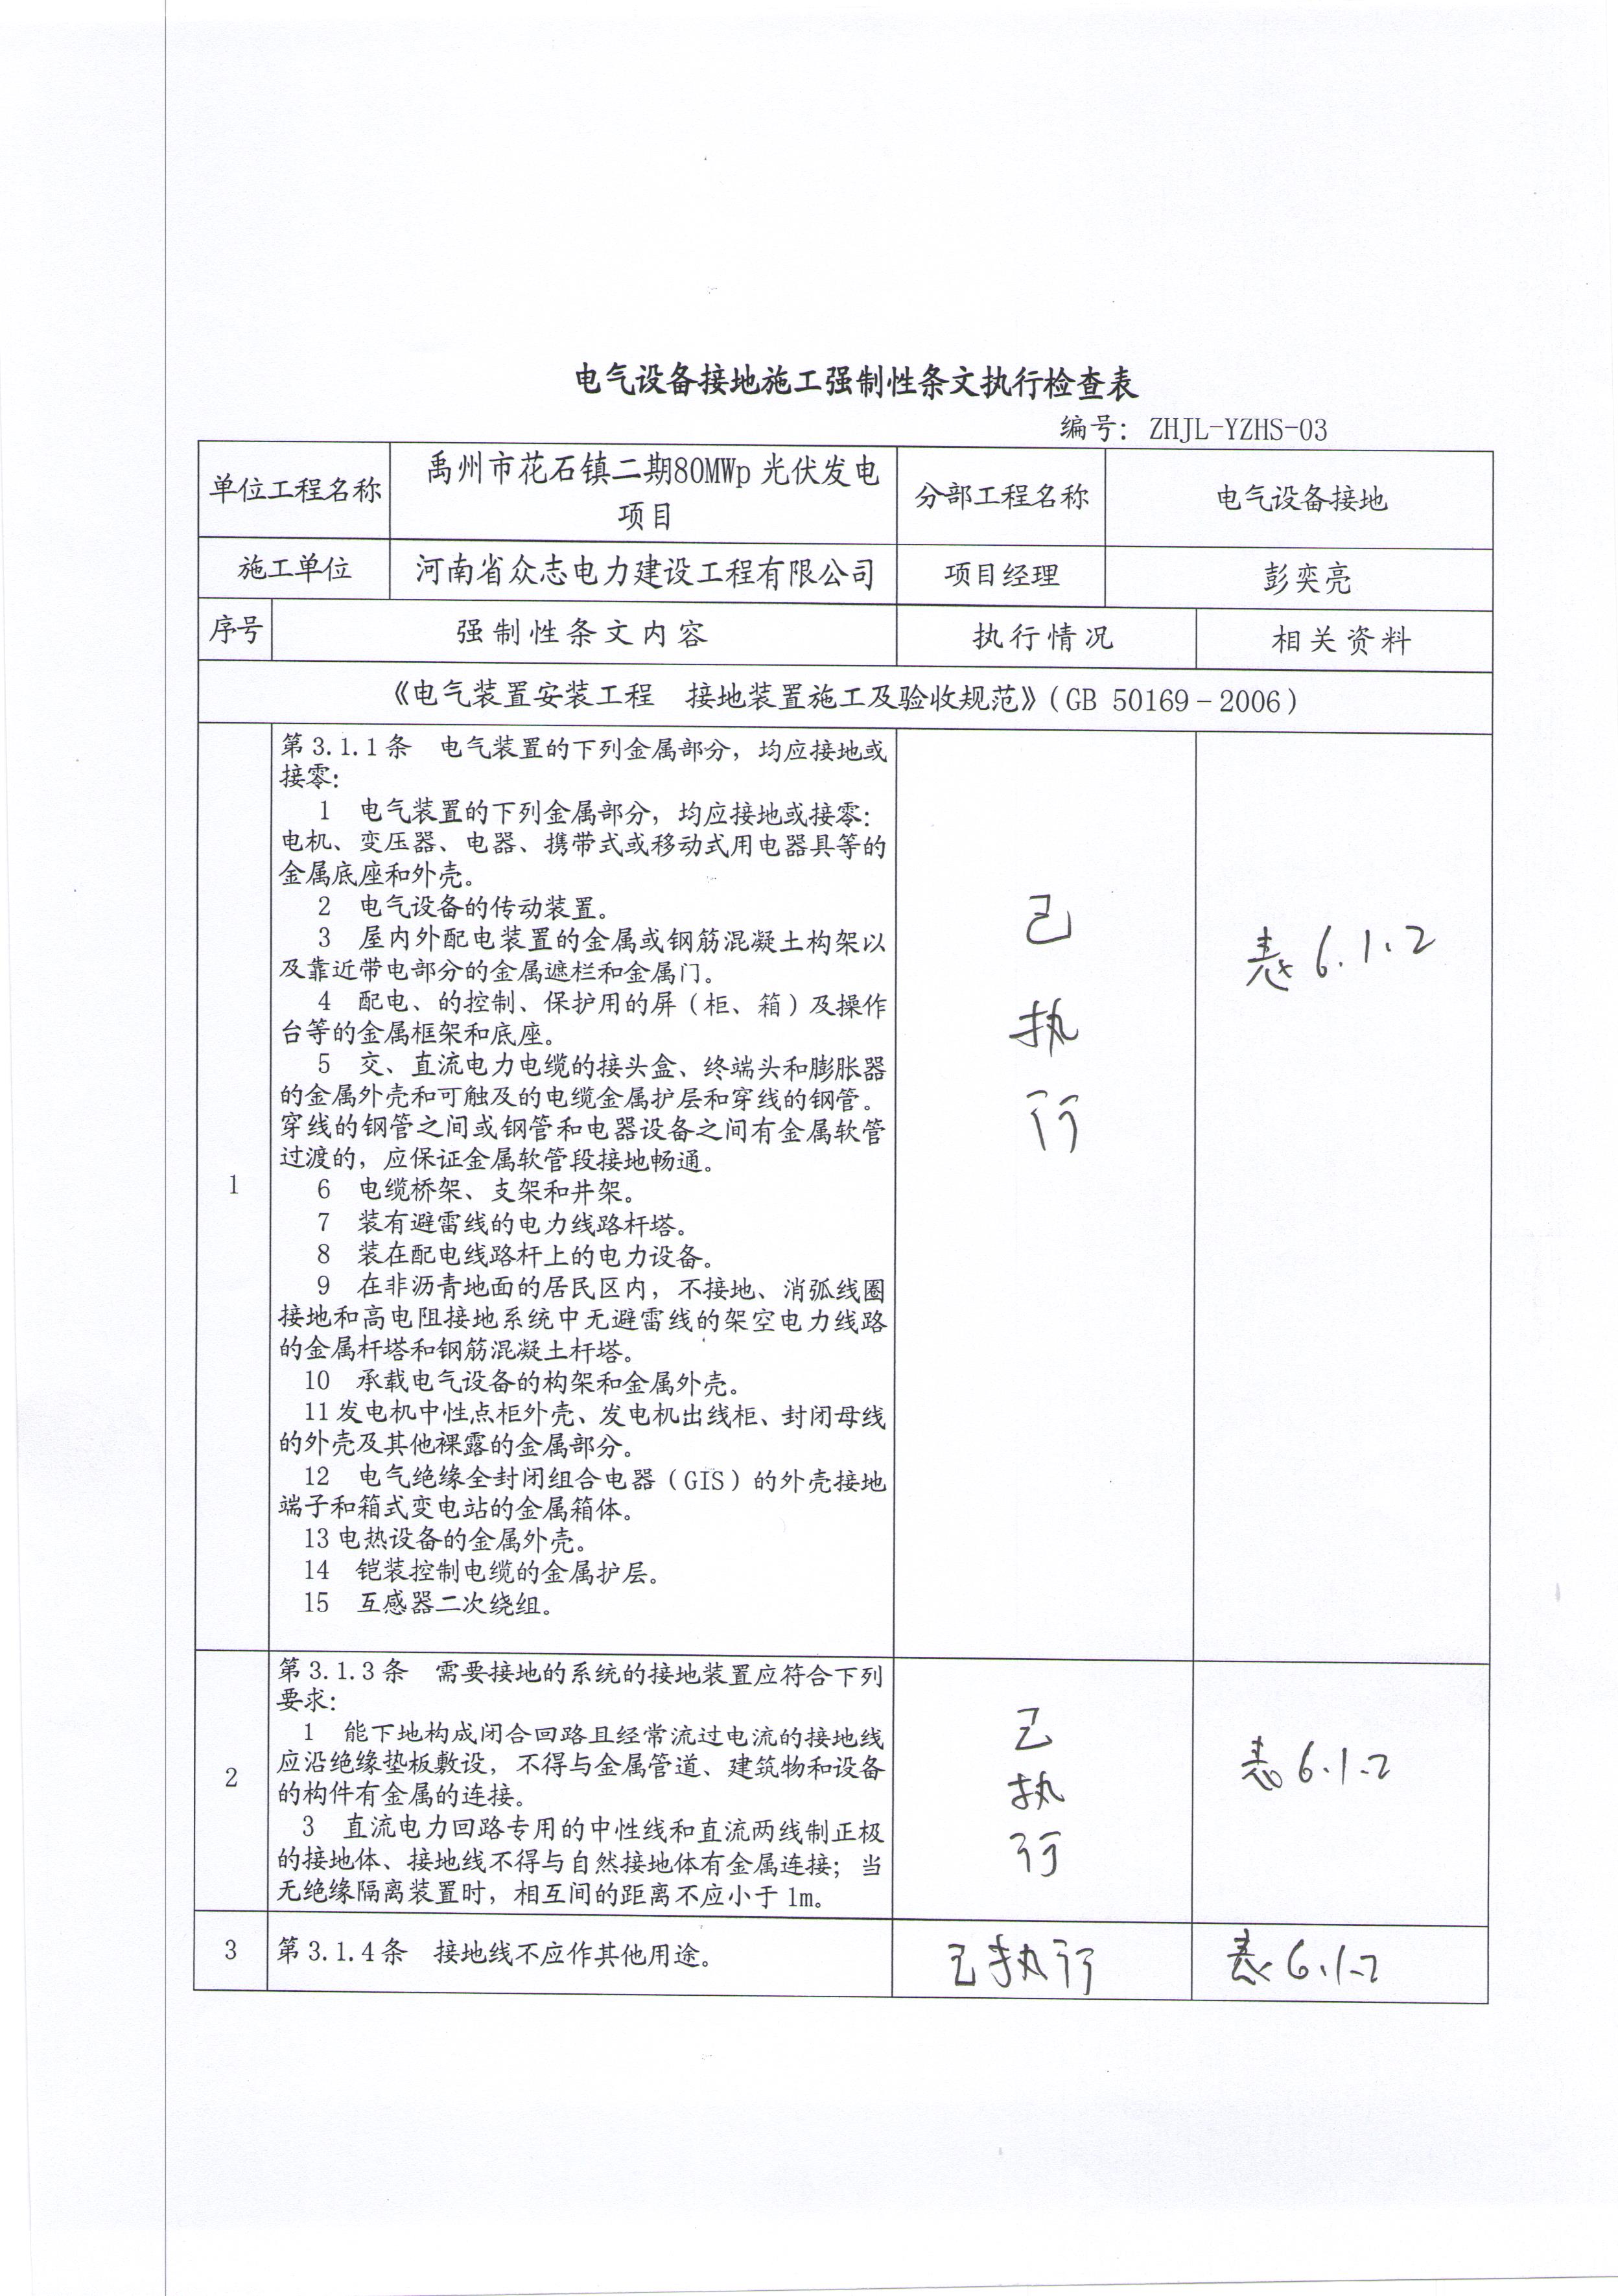 电气设备接地施工强制性条文执行检查表
编号：ZHJL-YZHS-03
单位工程名称
禹州市花石镇二期80MWp光伏发电
项目
分部工程名称
电气设备接地
施工单位
河南省众志电力建设工程有限公司
项目经理
彭奕亮
序号
强制性条文内容
执行情况
相关资料
《电气装置安装工程　接地装置施工及验收规范》（GB 50169－2006）
1
第3.1.1条　电气装置的下列金属部分，均应接地或
接零：
1　电气装置的下列金属部分，均应接地或接零：
电机、变压器、电器、携带式或移动式用电器具等的
金属底座和外壳。
2　电气设备的传动装置。
3　屋内外配电装置的金属或钢筋混凝土构架以
及靠近带电部分的金属遮栏和金属门。
4　配电、的控制、保护用的屏（柜、箱）及操作
台等的金属框架和底座。
5　交、直流电力电缆的接头盒、终端头和膨胀器
的金属外壳和可触及的电缆金属护层和穿线的钢管。
穿线的钢管之间或钢管和电器设备之间有金属软管
过渡的，应保证金属软管段接地畅通。
6　电缆桥架、支架和井架。
7　装有避雷线的电力线路杆塔。
8　装在配电线路杆上的电力设备。
9　在非沥青地面的居民区内，不接地、消弧线圈
接地和高电阻接地系统中无避雷线的架空电力线路
的金属杆塔和钢筋混凝土杆塔。
10　承载电气设备的构架和金属外壳。
11发电机中性点柜外壳、发电机出线柜、封闭母线
的外壳及其他裸露的金属部分。
12　电气绝缘全封闭组合电器（GIS）的外壳接地
端子和箱式变电站的金属箱体。
13电热设备的金属外壳。
14　铠装控制电缆的金属护层。
15　互感器二次绕组。
已
执
行
表6.1.2
2
第3.1.3条　需要接地的系统的接地装置应符合下列
要求：
1　能下地构成闭合回路且经常流过电流的接地线
应沿绝缘垫板敷设，不得与金属管道、建筑物和设备
的构件有金属的连接。
3　直流电力回路专用的中性线和直流两线制正极
的接地体、接地线不得与自然接地体有金属连接；当
无绝缘隔离装置时，相互间的距离不应小于1m。
已
执
行
表6.1.2
3
第3.1.4条　接地线不应作其他用途。
已执行
表6.1.2